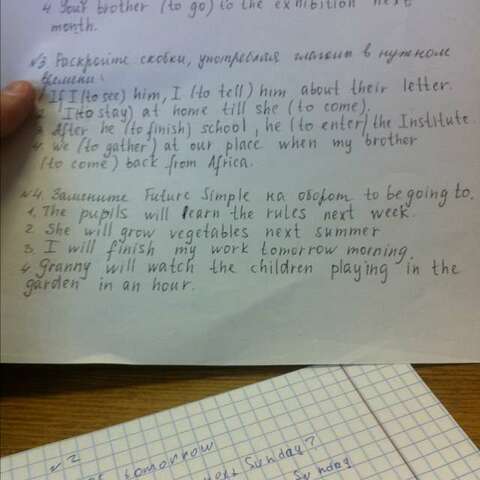 4 Your brother (to go) to the exhibition next
month.
№3 Раскройте скобки, употребляя глагол в нужном
времени:
1 If I (to see) him, I (to tell) him about their letter.
2 I (to stay) at home till she (to come).
3 After he (to finish) school, he (to enter) the Institute.
4. We (to gather) at our place when my brother
(to come) back from Africa.
№4. Замените Future Simple на оборот to be going to.
1. The pupils will learn the rules next week.
2 She will grow vegetables next summer
3. I will finish my work tomorrow morning.
4 Granny will watch the children playing in the
garden in an hour.
№2
tomorrow
next Sunday?
Sunday